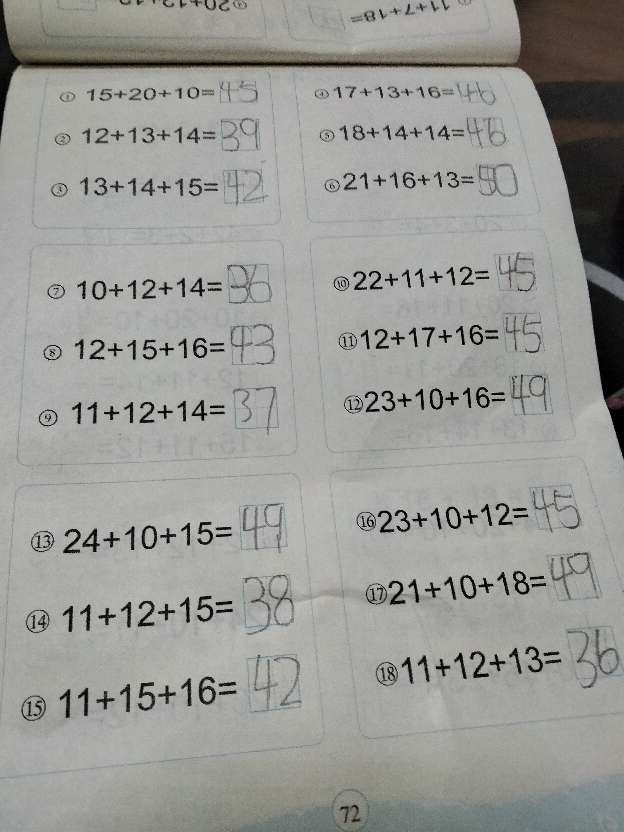 11+7+18=
① 15+20+10=45
② 12+13+14=39
③ 13+14+15=42
④ 17+13+16=46
⑤ 18+14+14=46
⑥ 21+16+13=50
⑦ 10+12+14=36
⑧ 12+15+16=43
⑨ 11+12+14=37
⑩ 22+11+12=45
⑪ 12+17+16=45
⑫ 23+10+16=49
⑬ 24+10+15=49
⑭ 11+12+15=38
⑮ 11+15+16=42
⑯ 23+10+12=45
⑰ 21+10+18=49
⑱ 11+12+13=36
72